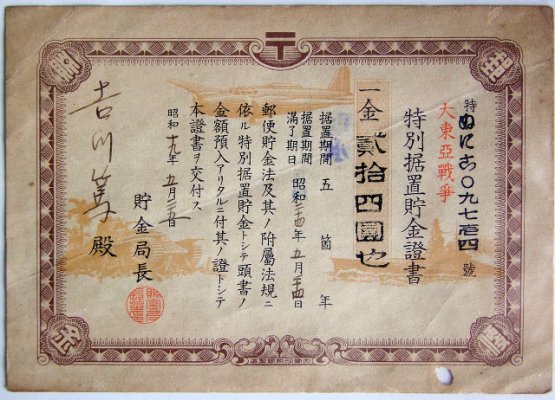 大東亞戰爭
特別据置貯金證書
一金貳拾四圓也
据置期間 五箇年
据置期間滿了期日 昭和 年五月 日
郵便貯金法及其ノ附屬法規ニ
依ル特別据置貯金トシテ頭書ノ
金額預入アリタルニ付其ノ證トシテ
本證書ヲ交付ス
昭和十九年五月 日
貯金局長
吉川 殿